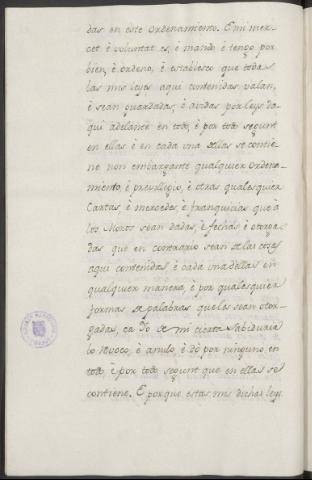 das en este Ordenamiento. E mi mer-
cet è voluntat es, è mando è tengo por
bien, è ordeno, è establesco que todas
las mis leyes aqui contenidas valan,
è sean guardadas, è avidas por leys da-
qui adelante en todo, è por todo segunt
en ellas è en cada una dellas se contie-
ne non embargante qualquier Ordena-
miento, è previlegio, è otras qualesquier
Cartas, è mercedes, è franquicias que à
los Moros sean dadas, è fechas è otorga-
das que en contrario sean de las cosas
aqui contenidas è cada una dellas en
qualquier manera, è por qualesquier
formas de palabras que les sean otor-
gadas, ca Yo de mi cierta sabiduria
lo revoco, è anulo, è dò por ninguno en
todo, è por todo segunt que en ellas se
contiene. E porque estas mis dichas leys